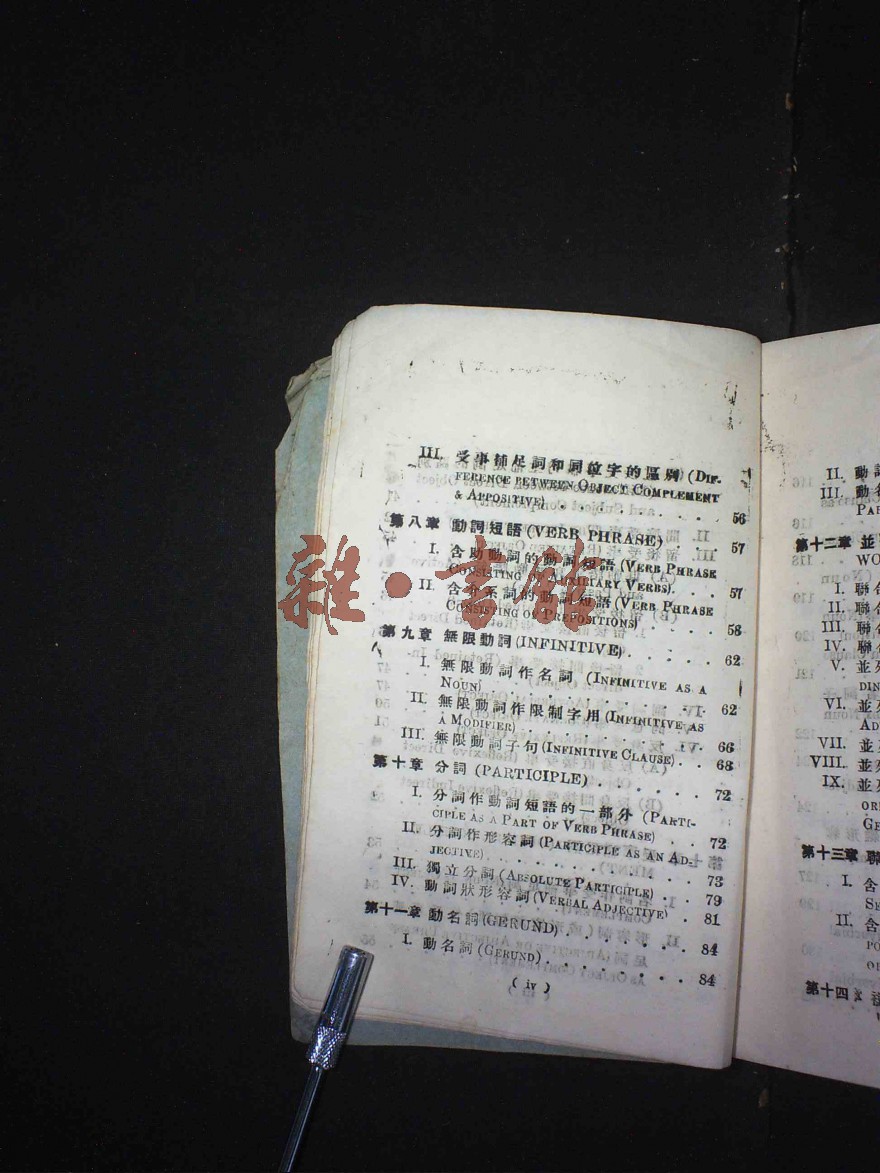 III. 受事補足詞和同位字的區別 (DIF-
FERENCE BETWEEN OBJECT COMPLEMENT
& APPOSITIVE) . . . . . . . . 56
第八章 動詞短語 (VERB PHRASE) . . . 57
I. 含助動詞的動詞短語 (VERB PHRASE
CONSISTING OF AUXILIARY VERBS). . 57
II. 含介系詞的動詞短語 (VERB PHRASE
CONSISTING OF PREPOSITIONS) . . . 58
第九章 無限動詞 (INFINITIVE) . . . . . 62
I. 無限動詞作名詞 (INFINITIVE AS A
NOUN) . . . . . . . . . . 62
II. 無限動詞作限制字用 (INFINITIVE AS
A MODIFIER) . . . . . . . . 66
III. 無限動詞子句 (INFINITIVE CLAUSE) . 68
第十章 分詞 (PARTICIPLE) . . . . . . 72
I. 分詞作動詞短語的一部分 (PARTI-
CIPLE AS A PART OF VERB PHRASE) . . 72
II. 分詞作形容詞 (PARTICIPLE AS AN AD-
JECTIVE) . . . . . . . . . 73
III. 獨立分詞 (ABSOLUTE PARTICIPLE) . . 79
IV. 動詞狀形容詞 (VERBAL ADJECTIVE) . 81
第十一章 動名詞 (GERUND) . . . . . . 84
I. 動名詞 (GERUND) . . . . . . . . 84
( iv )
雜·書館
II. 動
III. 動名
第十二章 並
WO
I. 聯合
II. 聯
III. 聯
IV. 聯
V. 並
DIN
VI. 並列
AD
VII. 並
VIII. 並列
IX. 並
OR
GE
第十三章 聯
I. 含
SE
II. 含
PO
第十四